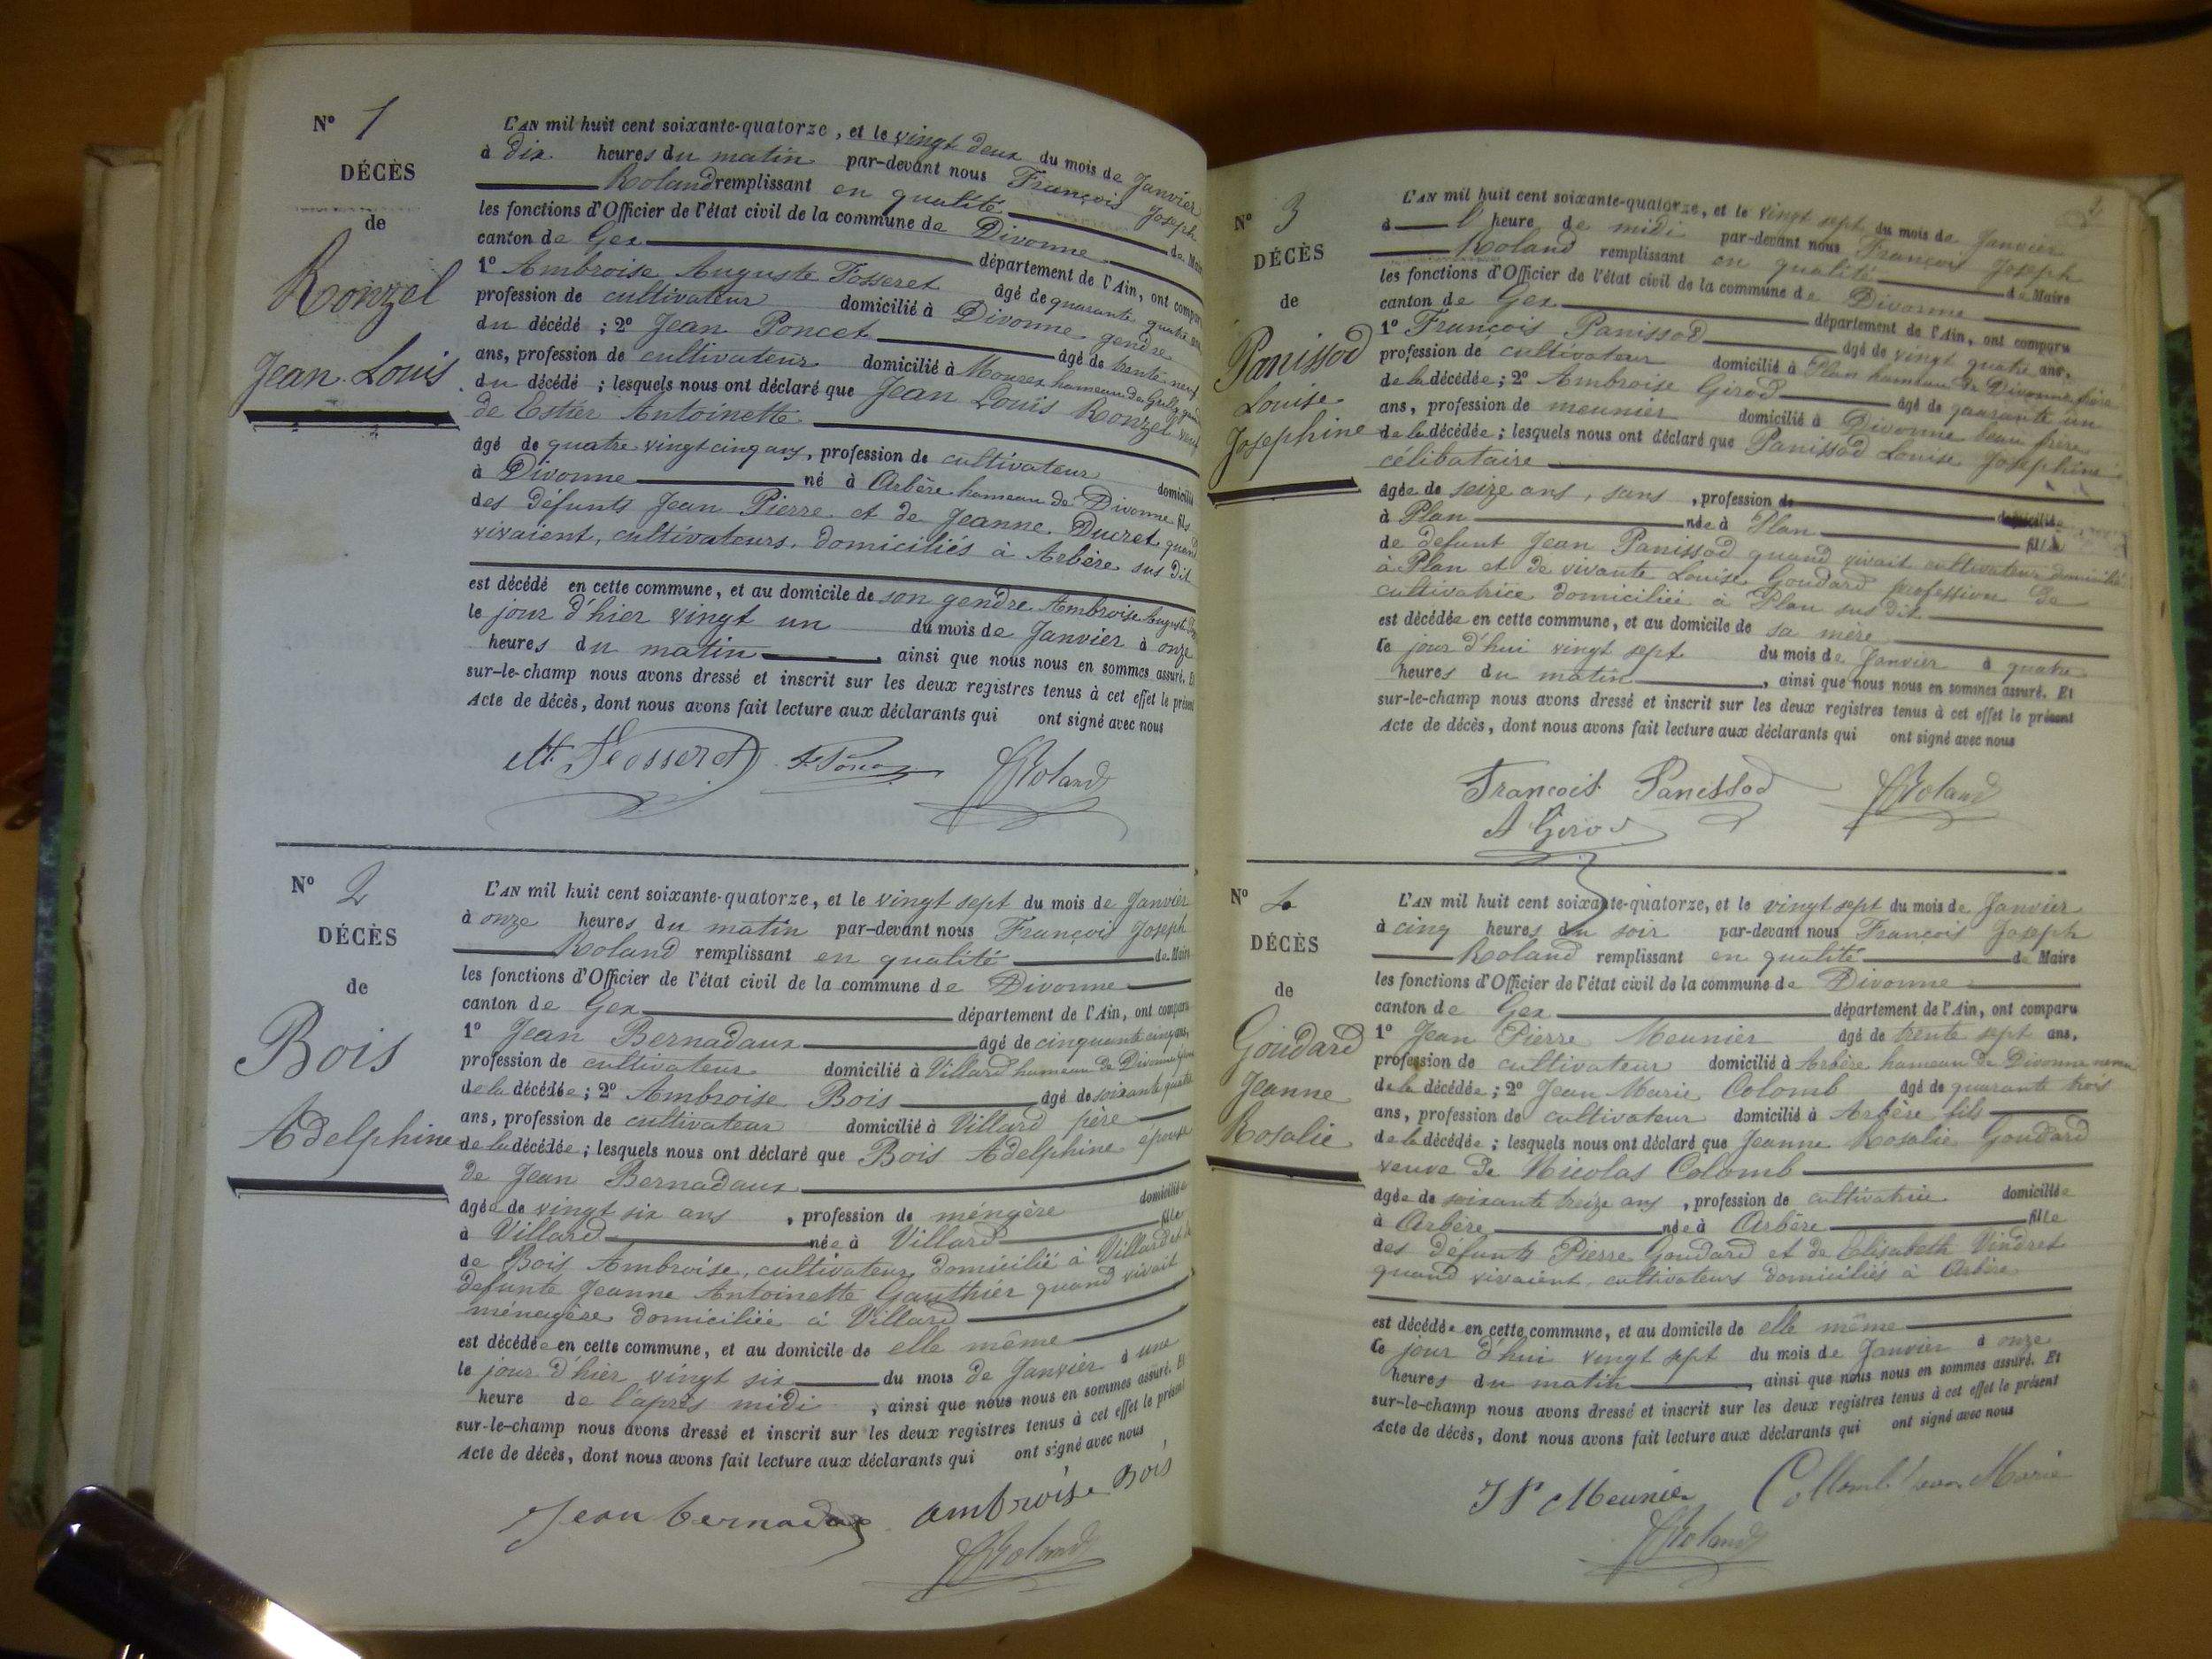 N° 1
DÉCÈS
de
Ronzel
Jean Louis
L'AN mil huit cent soixante-quatorze, et le vingt deux du mois de Janvier
à dix heures du matin par-devant nous François Joseph
Roland remplissant en qualité de Mai
les fonctions d'Officier de l'état civil de la commune de Divonne
canton de Gex département de l'Ain, ont compar
1° Ambroise Auguste Fosseret âgé de quarante quatre ans
profession de cultivateur domicilié à Divonne gendre
du décédé ; 2° Jean Poncet âgé de trente neuf
ans, profession de cultivateur domicilié à Mourex hameau de
du décédé ; lesquels nous ont déclaré que Jean Louis Ronzel veuf
de Estier Antoinette
âgé de quatre vingt cinq ans, profession de cultivateur domicilié
à Divonne né à Arbère hameau de Divonne fils
des défunts Jean Pierre et de Jeanne Ducret quand
vivaient, cultivateurs, domiciliés à Arbère sus dit
est décédé en cette commune, et au domicile de son gendre Ambroise Auguste
le jour d'hier vingt un du mois de Janvier à onze
heures du matin , ainsi que nous nous en sommes assuré. Et
sur-le-champ nous avons dressé et inscrit sur les deux registres tenus à cet effet le présent
Acte de décès, dont nous avons fait lecture aux déclarants qui ont signé avec nous
Fosseret Roland
N° 2
DÉCÈS
de
Bois
Adelphine
L'AN mil huit cent soixante-quatorze, et le vingt sept du mois de Janvier
à onze heures du matin par-devant nous François Joseph
Roland remplissant en qualité de Maire
les fonctions d'Officier de l'état civil de la commune de Divonne
canton de Gex département de l'Ain, ont comparu
1° Jean Bernadaux âgé de cinquante cinq ans,
profession de cultivateur domicilié à Villard hameau de Divonne
de la décédée ; 2° Ambroise Bois âgé de soixante quatre
ans, profession de cultivateur domicilié à Villard père
de la décédée ; lesquels nous ont déclaré que Bois Adelphine épouse
de Jean Bernadaux
âgée de vingt six ans , profession de méngère domiciliée
à Villard née à Villard fille
de Bois Ambroise, cultivateur domicilié à Villard et de
defunte Jeanne Antoinette Gauthier quand vivait
ménagère domiciliée à Villard
est décédée en cette commune, et au domicile de elle même
le jour d'hier vingt six du mois de Janvier à une
heure de l'après midi , ainsi que nous nous en sommes assuré. Et
sur-le-champ nous avons dressé et inscrit sur les deux registres tenus à cet effet le présent
Acte de décès, dont nous avons fait lecture aux déclarants qui ont signé avec nous
Jean bernadax ambroise Bois
Roland
2
N° 3
DÉCÈS
de
Panissod
Louise
Josephine
L'AN mil huit cent soixante-quatorze, et le vingt sept du mois de Janvier
à l heure de midi par-devant nous François Joseph
Roland remplissant en qualité de Maire
les fonctions d'Officier de l'état civil de la commune de Divonne
canton de Gex département de l'Ain, ont comparu
1° François Panissod âgé de vingt quatre ans,
profession de cultivateur domicilié à Plan hameau de Divonne frère
de la décédée ; 2° Ambroise Girod âgé de quarante un
ans, profession de meunier domicilié à Divonne beau frère
de la décédée ; lesquels nous ont déclaré que Panissod Louise Josephine
célibataire
âgée de seize ans, sans , profession de domiciliée
à Plan née à Plan fille
de defunt Jean Panissod quand vivait cultivateur domicilié
à Plan et de vivante Louise Goudard profession de
cultivatrice domiciliée à Plan sus dit
est décédée en cette commune, et au domicile de sa mère
le jour d'hui vingt sept du mois de Janvier à quatre
heures du matin , ainsi que nous nous en sommes assuré. Et
sur-le-champ nous avons dressé et inscrit sur les deux registres tenus à cet effet le présent
Acte de décès, dont nous avons fait lecture aux déclarants qui ont signé avec nous
Francois Panissod Roland
A Girod
N° 4
DÉCÈS
de
Goudard
Jeanne
Rosalie
L'AN mil huit cent soixante-quatorze, et le vingt sept du mois de Janvier
à cinq heures du soir par-devant nous François Joseph
Roland remplissant en qualité de Maire
les fonctions d'Officier de l'état civil de la commune de Divonne
canton de Gex département de l'Ain, ont comparu
1° Jean Pierre Meunier âgé de trente sept ans,
profession de cultivateur domicilié à Arbère hameau de Divonne neveu
de la décédée ; 2° Jean Marie Colomb âgé de quarante trois
ans, profession de cultivateur domicilié à Arbère fils
de la décédée ; lesquels nous ont déclaré que Jeanne Rosalie Goudard
veuve de Nicolas Colomb
âgée de soixante treize ans , profession de cultivatrice domiciliée
à Arbère née à Arbère fille
des défunts Pierre Goudard et de Elisabeth Vindret
quand vivaient cultivateurs domiciliés à Arbère
est décédée en cette commune, et au domicile de elle même
le jour d'hui vingt sept du mois de Janvier à onze
heures du matin , ainsi que nous nous en sommes assuré. Et
sur-le-champ nous avons dressé et inscrit sur les deux registres tenus à cet effet le présent
Acte de décès, dont nous avons fait lecture aux déclarants qui ont signé avec nous
J P Meunier Collomb Jean Marie
Roland